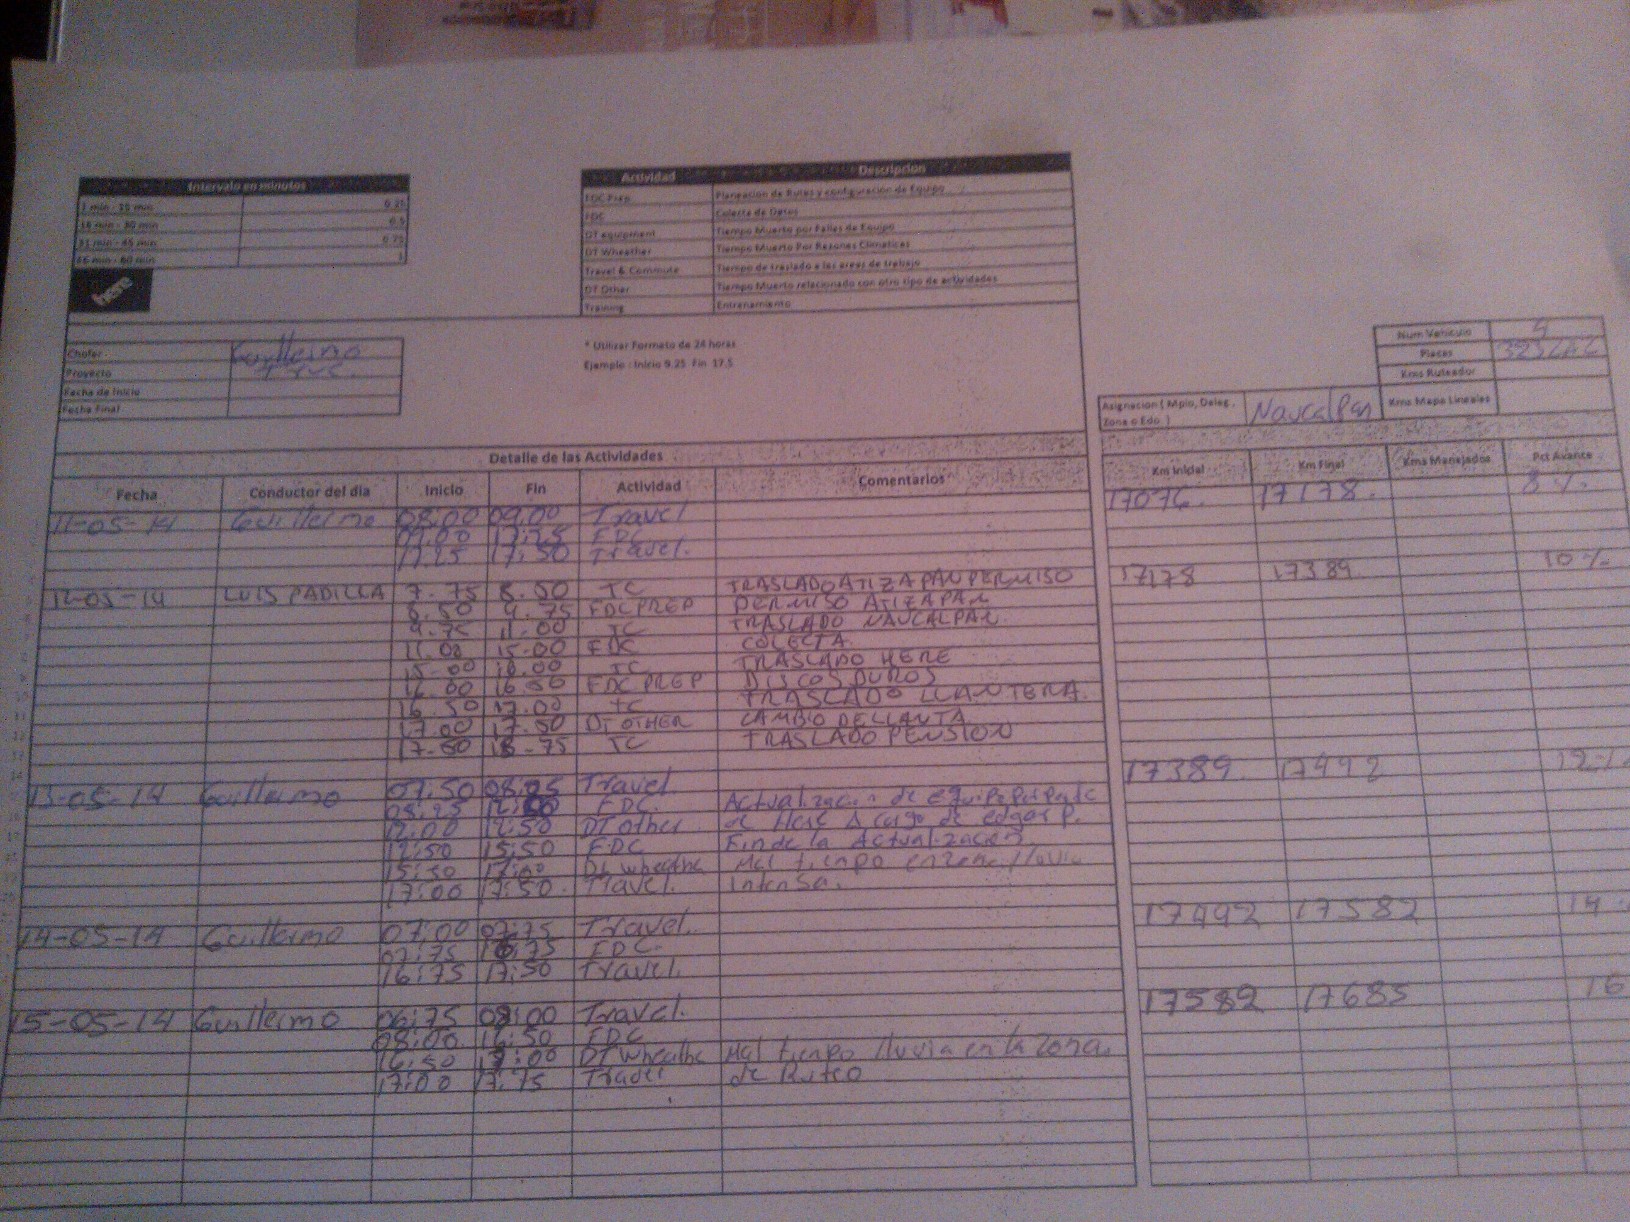 Intervalo en minutos
1 min - 15 min 0.25
16 min - 30 min 0.5
31 min - 45 min 0.75
46 min - 60 min 1
here
Actividad Descripcion
FDC Prep Planeacion de Rutas y configuracion de Equipo
FDC Colecta de Datos
DT equipment Tiempo Muerto por Fallas de Equipo
DT Wheather Tiempo Muerto Por Razones Climaticas
Travel & Commute Tiempo de traslado a las areas de trabajo
DT Other Tiempo Muerto relacionado con otro tipo de actividades
Training Entrenamiento
* Utilizar Formato de 24 horas
Ejemplo : Inicio 9.25 Fin 17.5
Chofer Guillermo
Proyecto
Fecha de Inicio
Fecha Final
Num Vehiculo 4
Placas
Kms Ruteador
Kms Mapa Lineales
Asignacion ( Mpio, Deleg,
Zona o Edo. ) Naucalpan
Detalle de las Actividades
Fecha Conductor del dia Inicio Fin Actividad Comentarios Km Inicial Km Final Kms Manejados Pct Avance
11-05-14 Guillermo 08:00 09:00 Travel 17076. 17178. 8 %.
09:00 17:25 FDC
17:25 17:50 Travel.
12-05-14 LUIS PADILLA 7.75 8.50 TC TRASLADO ATIZAPAN PERMISO 17178 17389. 10 %
8.50 9.75 FDC PREP PERMISO ATIZAPAN
9.75 11.00 TC TRASLADO NAUCALPAN.
11.00 15.00 FDC COLECTA.
15.00 16.00 TC TRASLADO HERE
16.00 16.50 FDC PREP DISCOS DUROS
16.50 17.00 TC TRASLADO LLANTERA.
17.00 17.50 DT OTHER CAMBIO DE LLANTA
17.50 18.75 TC TRASLADO PENSION
13-05-14 Guillermo 07:50 08:25 Travel. 17389. 17492
08:25 12:00 FDC. Actualizacion de equipo por parte
12:00 12:50 DT other de Here A cargo de edgar P.
12:50 15:50 FDC Fin de la Actualizacion.
15:50 17:00 DT wheathe Mal tiempo en zona lluvia
17:00 17:50. Travel. intensa.
14-05-14 Guillermo 07:00 07:75 Travel. 17492 17582 14
07:75 16:75 FDC.
16:75 17:50 Travel.
15-05-14 Guillermo 06:75 08:00 Travel. 17582 17685 16
08:00. 16:50 FDC
16:50 17:00 DT wheathe Mal tiempo lluvia en la zona.
17:00 17:75 de Ruteo